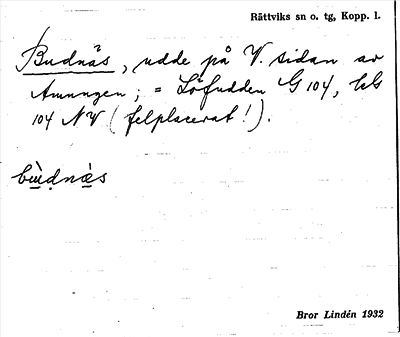 Rättviks sn o. tg, Kopp. l.
Budnäs, udde på V. sidan av
Amungen; = Löfudden G 104, bl
104 NV (felplacerat!).
bùdnæ̀s
Bror Lindén 1932